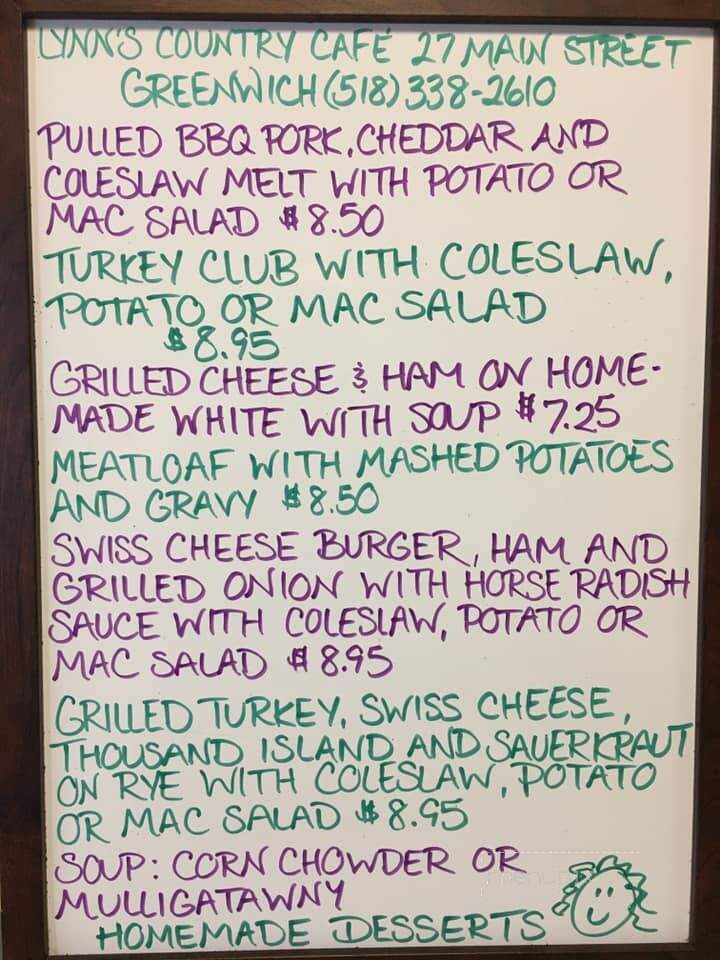 LYNN'S COUNTRY CAFÉ 27 MAIN STREET
GREENWICH (518) 338-2610
PULLED BBQ PORK, CHEDDAR AND
COLESLAW MELT WITH POTATO OR
MAC SALAD $8.50
TURKEY CLUB WITH COLESLAW,
POTATO OR MAC SALAD
$8.95
GRILLED CHEESE & HAM ON HOME-
MADE WHITE WITH SOUP $7.25
MEATLOAF WITH MASHED POTATOES
AND GRAVY $8.50
SWISS CHEESE BURGER, HAM AND
GRILLED ONION WITH HORSE RADISH
SAUCE WITH COLESLAW, POTATO OR
MAC SALAD $8.95
GRILLED TURKEY, SWISS CHEESE,
THOUSAND ISLAND AND SAUERKRAUT
ON RYE WITH COLESLAW, POTATO
OR MAC SALAD $8.95
SOUP: CORN CHOWDER OR
MULLIGATAWNY
HOMEMADE DESSERTS